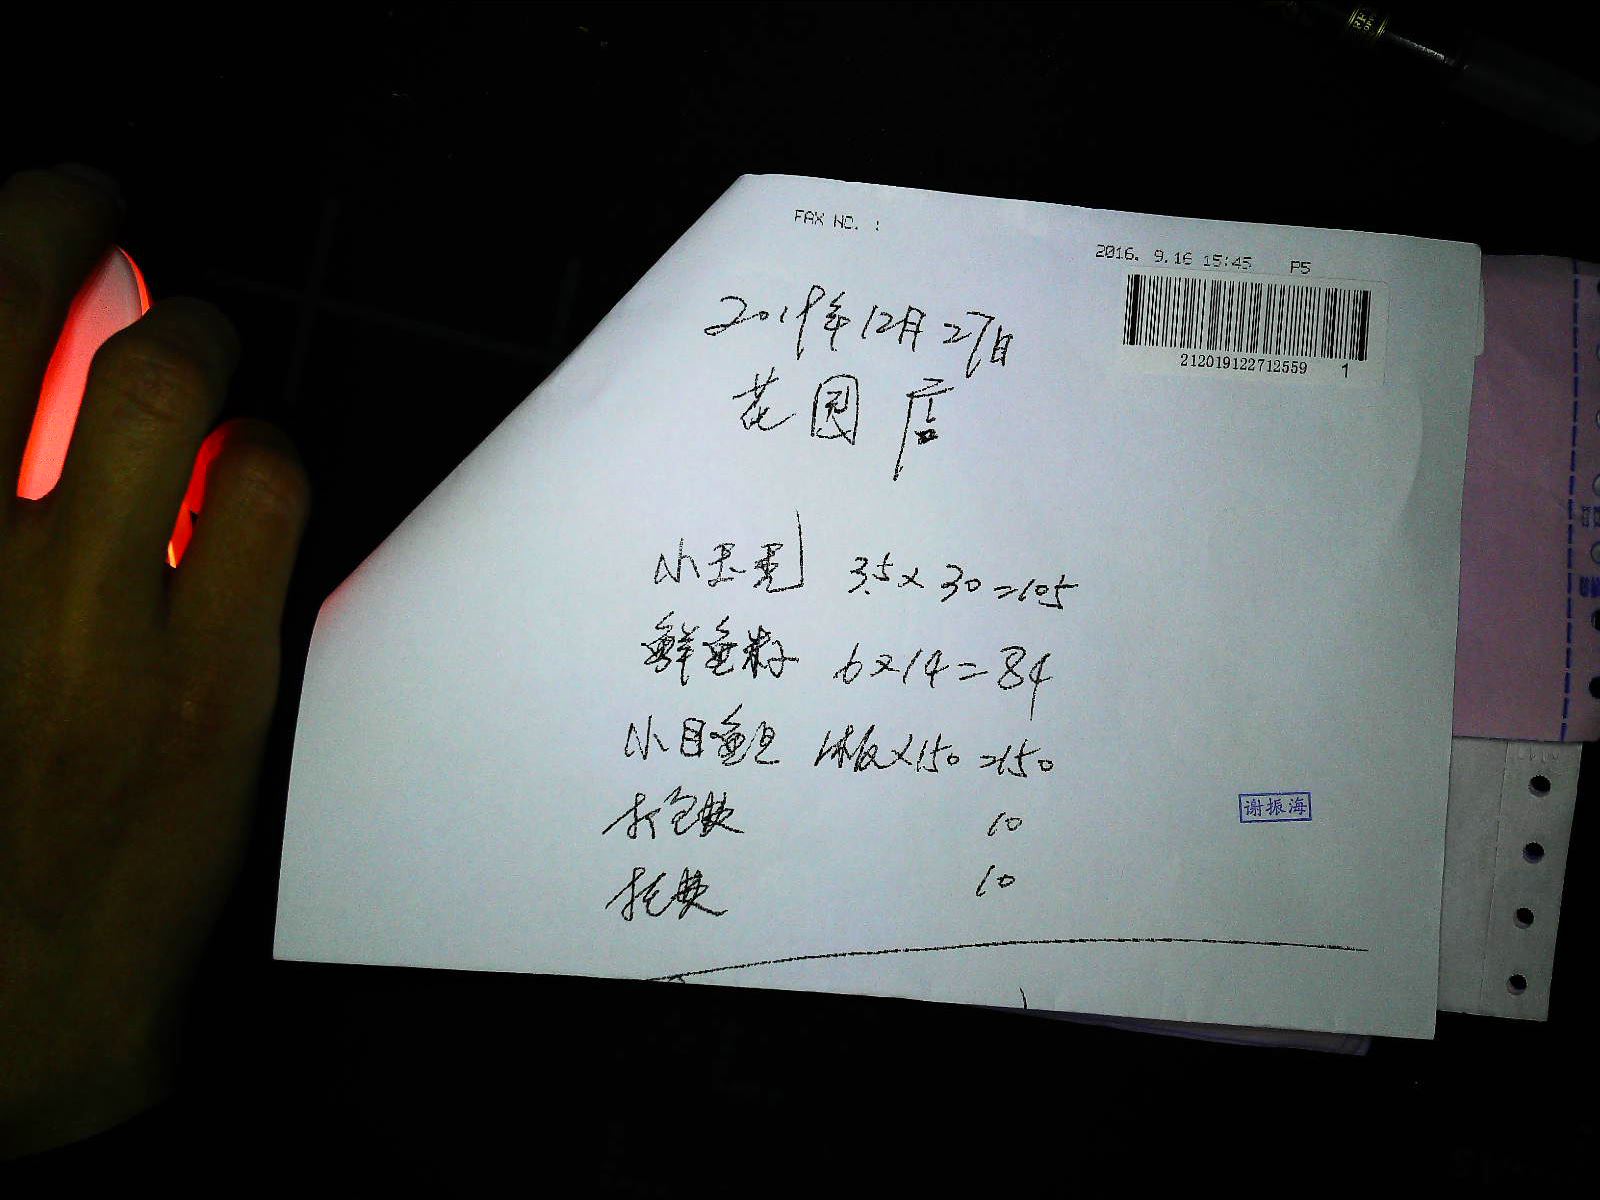 FAX NO. :
2016. 9.16 15:45 P5
212019122712559 1
2019年12月27日
花园店
3.5×30=105
鲜鱼籽 6×14=84
小目鱼旦 1板×150=150
打包费 10
托费 10
谢振海